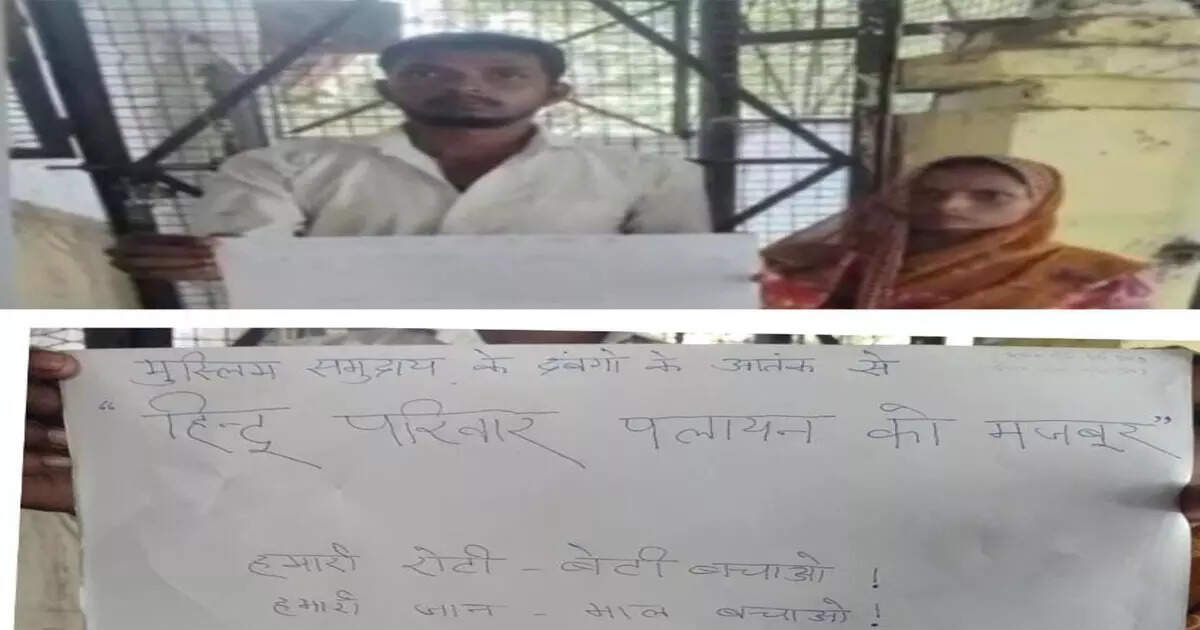 मुस्लिम समुदाय के दबंगो के आतंक से
"हिन्दू परिवार पलायन को मजबूर"
हमारी रोटी - बेटी बचाओ !
हमारी जान - माल बचाओ !